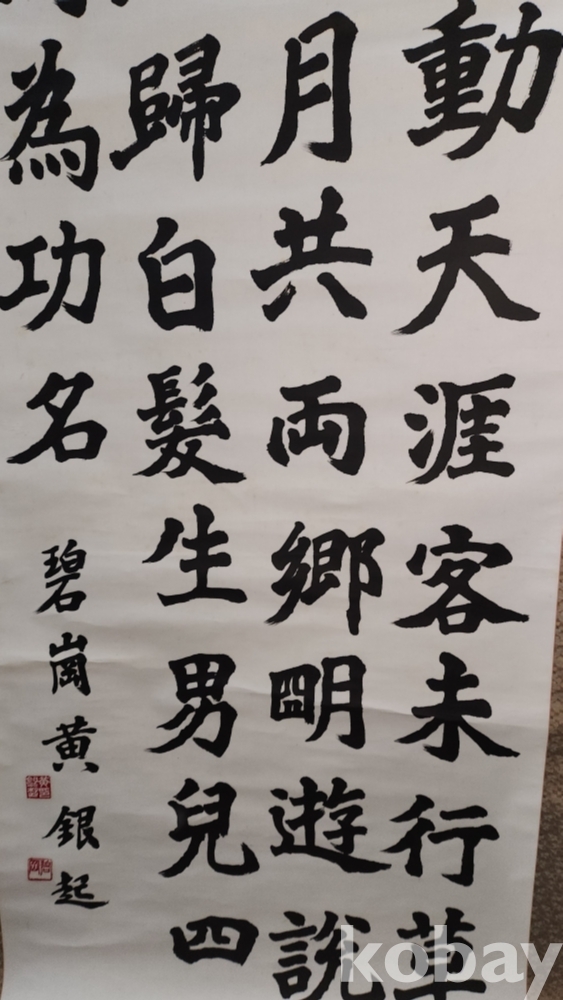 動天涯客未行草
月共両鄉明遊説
歸白髮生男兒四
為功名
碧崗黃銀起
kobay